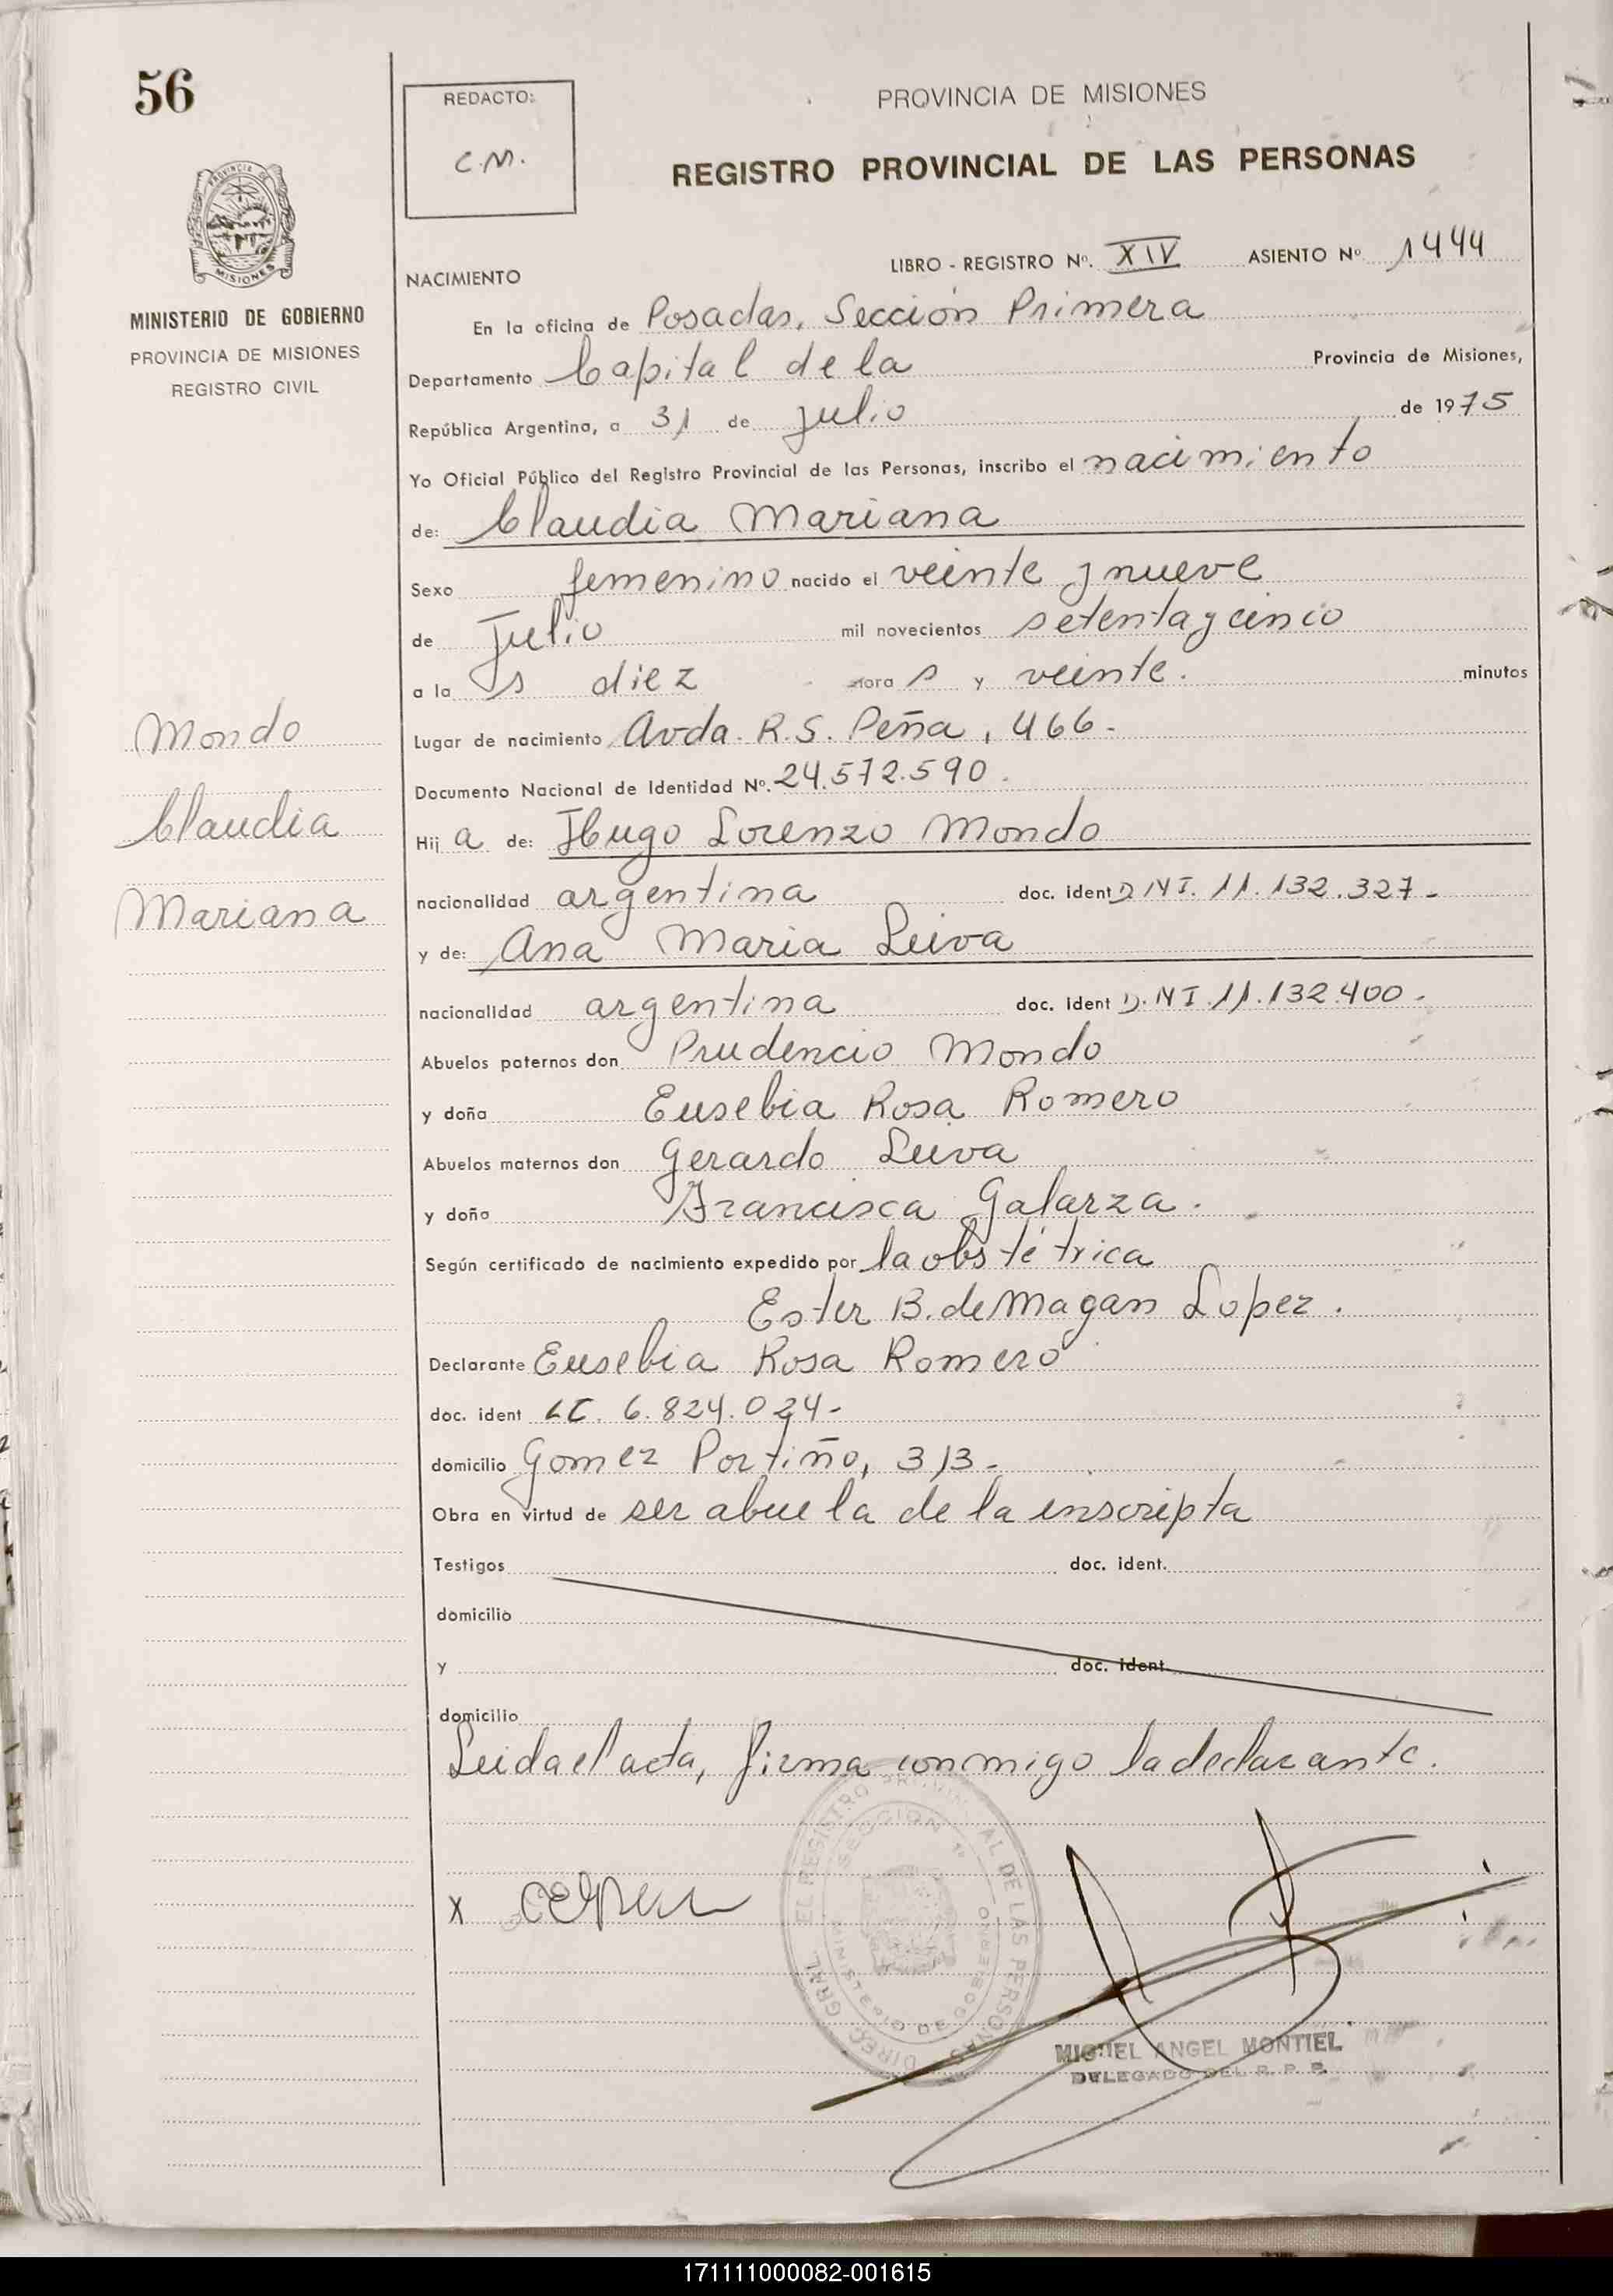 56
REDACTO:
C.M.
PROVINCIA DE MISIONES
REGISTRO PROVINCIAL DE LAS PERSONAS
PROVINCIA DE
MISIONES
MINISTERIO DE GOBIERNO
PROVINCIA DE MISIONES
REGISTRO CIVIL
LIBRO - REGISTRO Nº. XIV ASIENTO Nº 1444
NACIMIENTO
En la oficina de Posadas, Sección Primera
Departamento Capital de la Provincia de Misiones,
República Argentina, a 31 de julio de 1975
Yo Oficial Público del Registro Provincial de las Personas, inscribo el nacimiento
de: Claudia Mariana
Sexo femenino nacido el veinte y nueve
de Julio mil novecientos setenta y cinco
a la s diez hora s y veinte. minutos
Mondo
Claudia
Mariana
Lugar de nacimiento Avda. R.S. Peña, 466.-
Documento Nacional de Identidad Nº. 24.572.590.
Hij a de: Hugo Lorenzo Mondo
nacionalidad argentina doc. ident D.N.I. 11.132.327.-
y de: Ana Maria Leiva
nacionalidad argentina doc. ident D.N.I. 11.132.400.-
Abuelos paternos don Prudencio Mondo
y doña Eusebia Rosa Romero
Abuelos maternos don Gerardo Leiva
y doña Francisca Galarza.
Según certificado de nacimiento expedido por la obstétrica
Ester B. de Magan Lopez.
Declarante Eusebia Rosa Romero
doc. ident LC. 6.824.024-
domicilio Gomez Portiño, 313-
Obra en virtud de ser abuela de la inscripta
Testigos doc. ident.
domicilio
y doc. ident
domicilio
Leida el acta, firma conmigo la declarante.
X
DIREC. GRAL. EL REGISTRO PROVINCIAL DE LAS PERSONAS
SECCION 1ª
MINISTERIO DE GOBIERNO
MIGUEL ANGEL MONTIEL
DELEGADO DEL R. P. P.
171111000082-001615